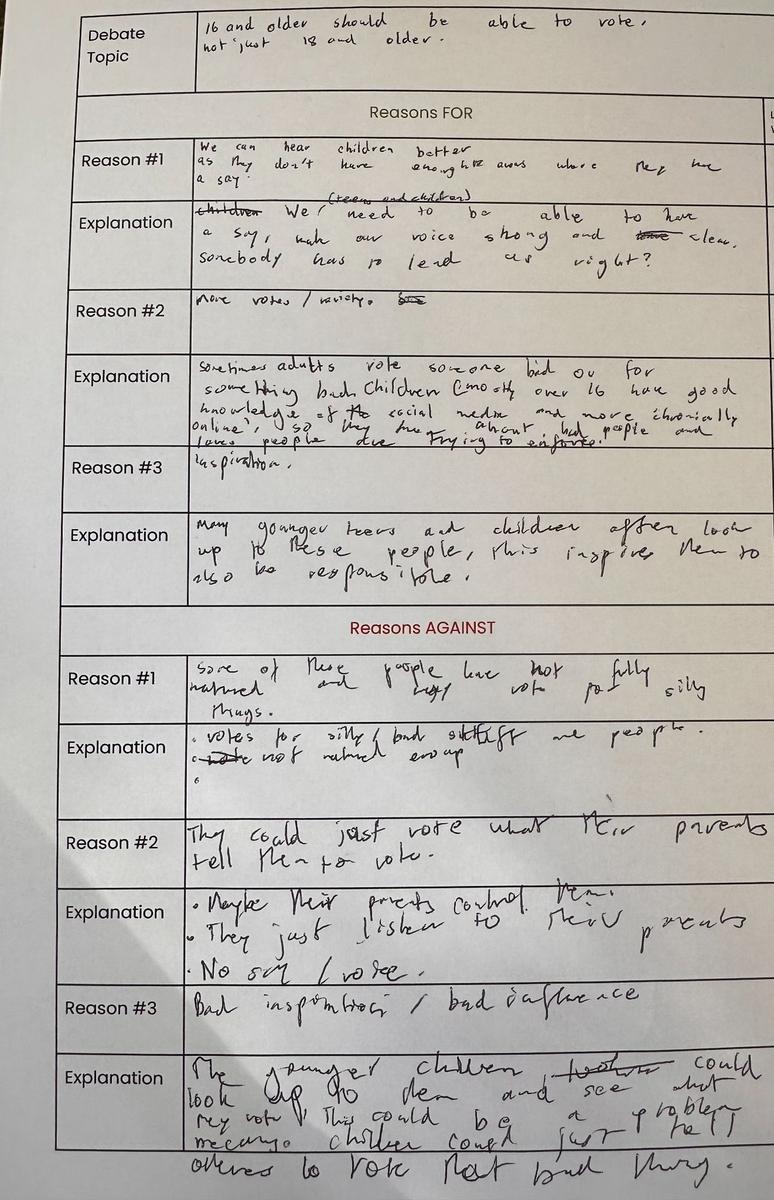 Debate
Topic
16 and older should be able to vote,
not just 18 and older.
Reasons FOR
Reason #1
We can hear children better
as they don't have enough areas where they have
a say.
Explanation
(teens and children)
children We need to be able to have
a say, make our voice strong and clear.
Somebody has to lead us right?
Reason #2
More votes / variety.
Explanation
Sometimes adults vote someone bad or for
something bad. Children (mostly over 16 have good
knowledge of the social media and more chronically
online', so they know about bad people and
laws people are trying to enforce.
Reason #3
Inspiration.
Explanation
Many younger teens and children often look
up to these people, this inspires them to
also be responsible.
Reasons AGAINST
Reason #1
Some of these people have not fully
matured and may vote for silly
things.
Explanation
• votes for silly / bad stuff and people.
• not matured enoup
•
Reason #2
They could just vote what their parents
tell them to vote.
Explanation
• Maybe their parents control them.
• They just listen to their parents
• No say / voice.
Reason #3
Bad inspiration / bad influence
Explanation
The younger children could
look up to them and see what
they vote, This could be a problem
because children could just tell
others to vote that bad thing.